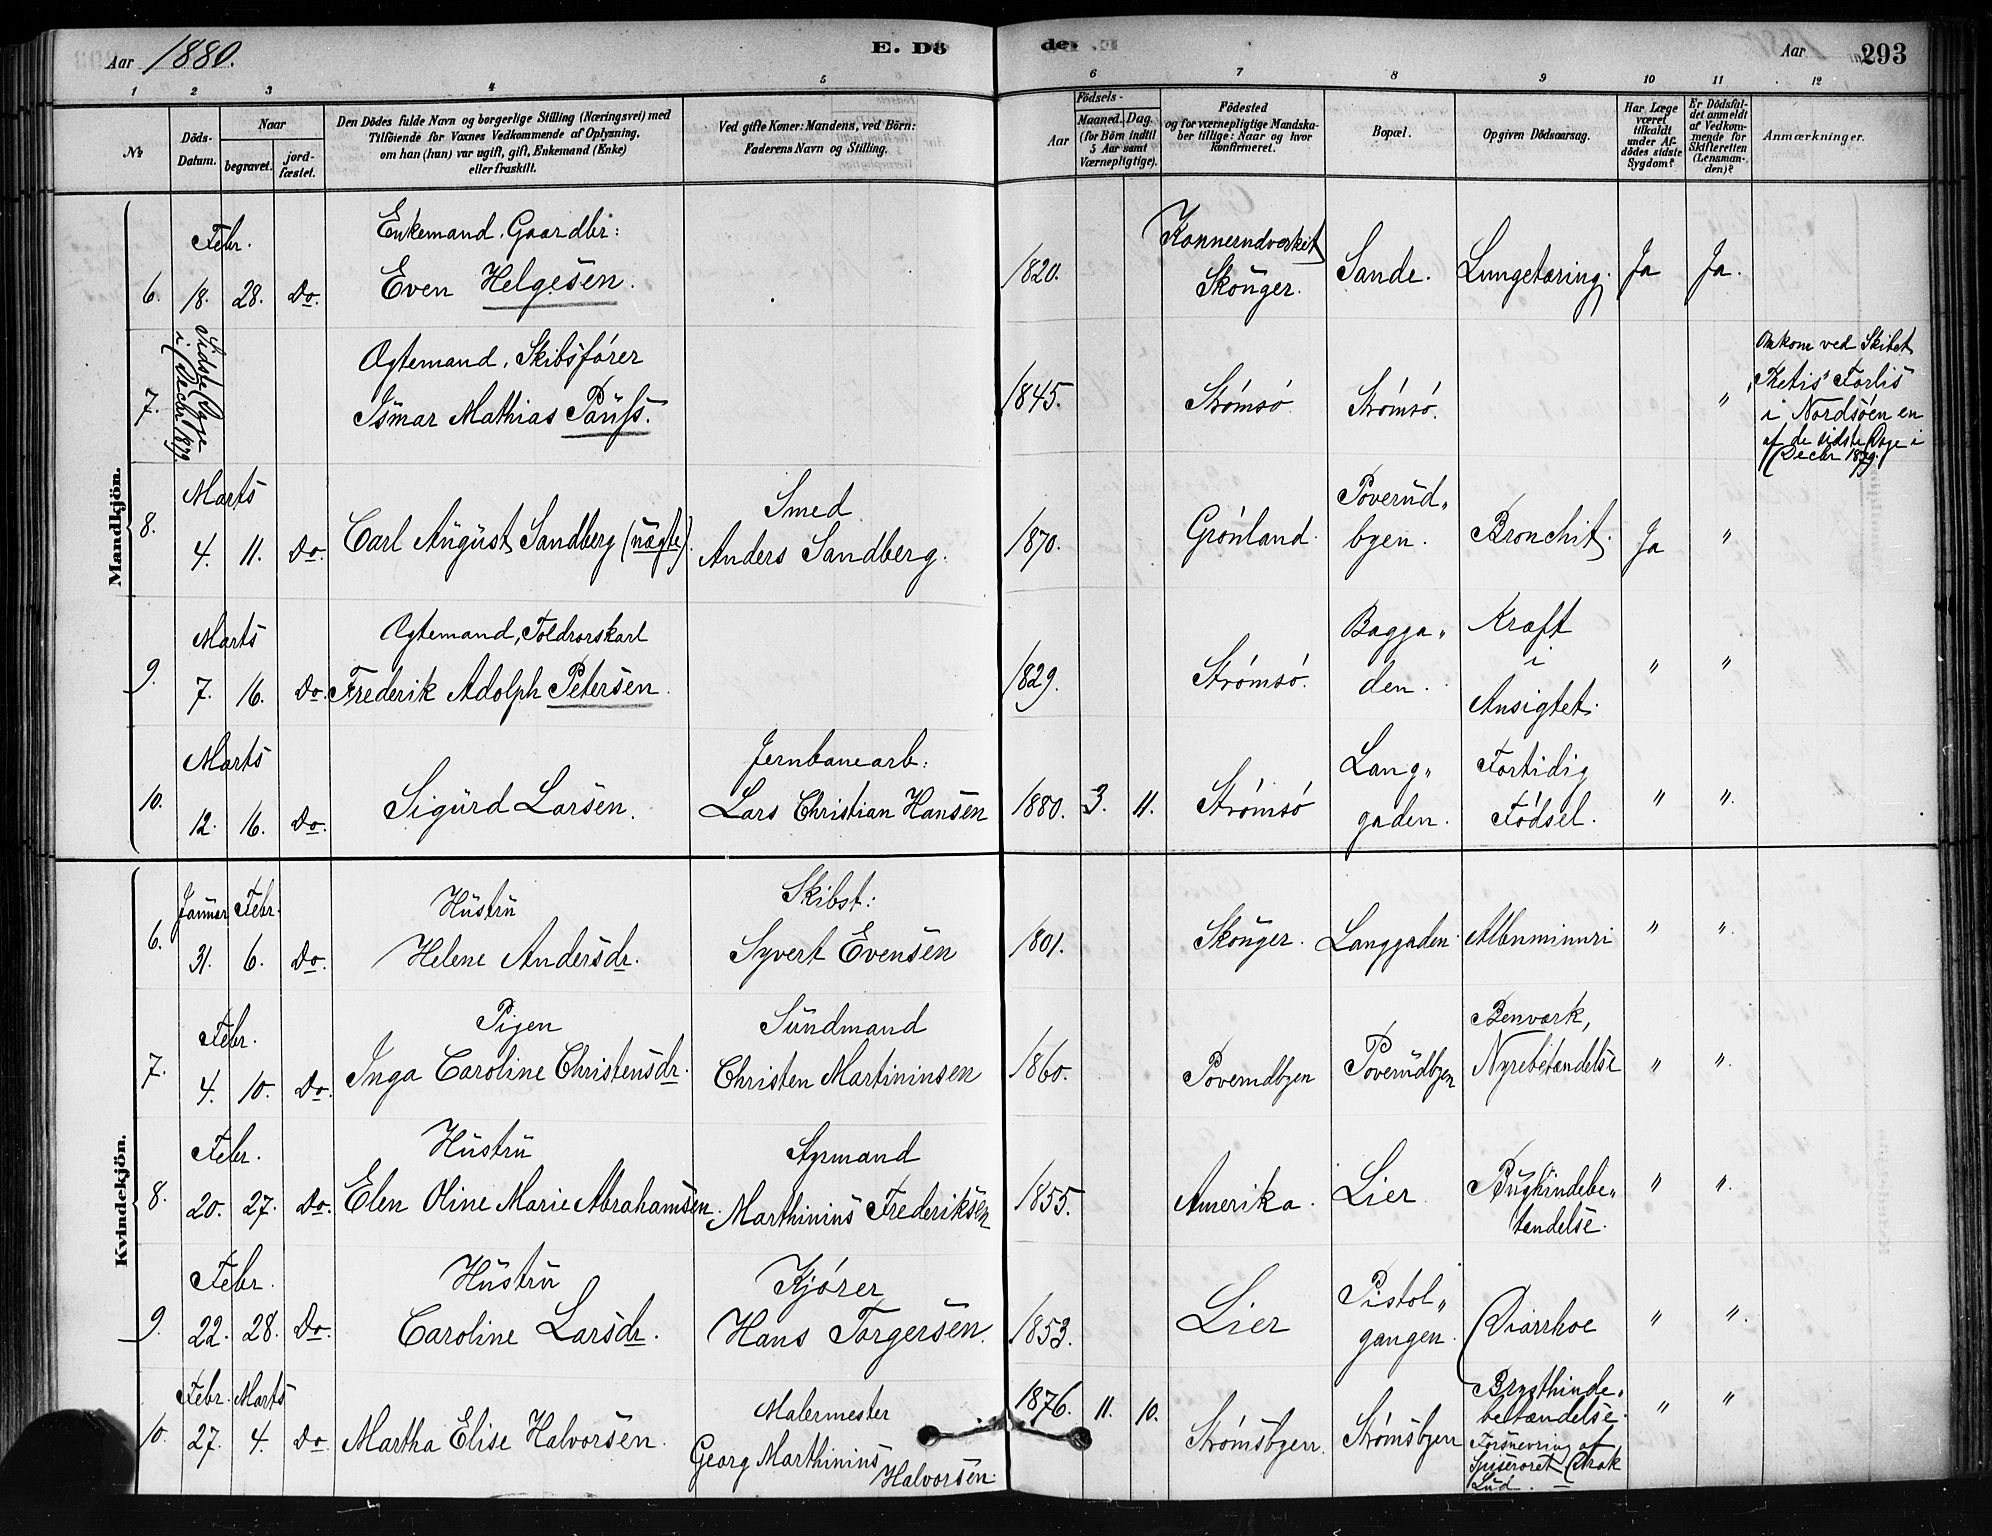 Aar 1880.
E. Dö
de. E.
Aar
293
1 2 3 4 5 6 7 8 9 10 11 12
№
Döds-Datum.
Naar
begravet.
jord-fæstet.
Den Dödes fulde Navn og borgerlige Stilling (Næringsvei) med
Tilföiende for Voxnes Vedkommende af Oplysning,
om han (hun) var ugift, gift, Enkemand (Enke)
eller fraskilt.
Ved gifte Koner: Mandens, ved Börn:
Faderens Navn og Stilling.
Födsels-
Aar
Maaned. Dag.
(for Börn indtil
5 Aar samt
Værnepligtige).
Födested
og for værnepligtige Mandska-
ber tillige: Naar og hvor
konfirmeret.
Bopæl.
Opgiven Dödsaarsag.
Har Læge
været
tilkaldt
under Af-
dödes sidste
Sygdom?
Er Dödsfal-
det anmeldt
af Vedkom-
mende for
Skifteretten
(Lensman-
den)?
Anmærkninger.
Mandkjön.
Febr. Enkemand. Gaardbr:
6. 18. 28. Do. Even Helgesen. 1820. Konnerudverket Skouger. Sande. Lungetæring. Ja Ja.
Sidste Dage
i Decbr. 1879.
Ægtemand, Skibsfører
7. Ismar Mathias Pauss. 1845. Strømsø. Strømsø. "
Omkom ved Skibet
"Thetis" Forlis
i Nordsøen en
af de sidste Dage i
Decbr 1879.
Marts Smed Poverud-
8. 4. 11. Do. Carl August Sandberg (uægte). Anders Sandberg. 1870. Grønland. byen. Bronchit. Ja "
Marts Ægtemand, Toldrorskarl Bagga- Kræft
9. 7. 16. Do. Frederik Adolph Petersen. 1829. Strømsø. den. i " "
Ansigtet.
Marts Jernbanearb: Lang- Fortidig
10. 12. 16. Do. Sigurd Larsen. Lars Christian Hansen 1880. 3. 11. Strømsø gaden. Fødsel. " "
Kvindekjön.
Januar Febr. Hustru Skibst:
6. 31. 6. Do. Helene Andersdr. Syvert Evensen 1801. Skouger. Langgaden. Albuminuri " "
Febr. Pigen Sundmand Benværk,
7. 4. 10. Do. Inga Caroline Christensdr. Christen Martininsen 1860. Poverudbyen Poverudbyen Nyrebetændelse " "
Febr. Hustru
8. 20. 27. Do. Elen Oline Marie Abrahamsen. Marthinius Frederiksen 1855. Amerika. Lier Bughindebe-
tændelse. " "
Febr. Hustru Kjører Pistol-
9. 22. 28. Do. Caroline Larsdr. Hans Torgersen. 1853. Lier gangen. Diarrhoe " "
Febr. Marts Malermester Brysthinde-
10. 27. 4. Do Martha Elise Halvorsen. Georg Marthinius
Halvorsen. 1876. 11. 10. Strømsbyen. Strømsbyen betændelse. " "
Forsnevring af
Spiserøret Drak
Lud.